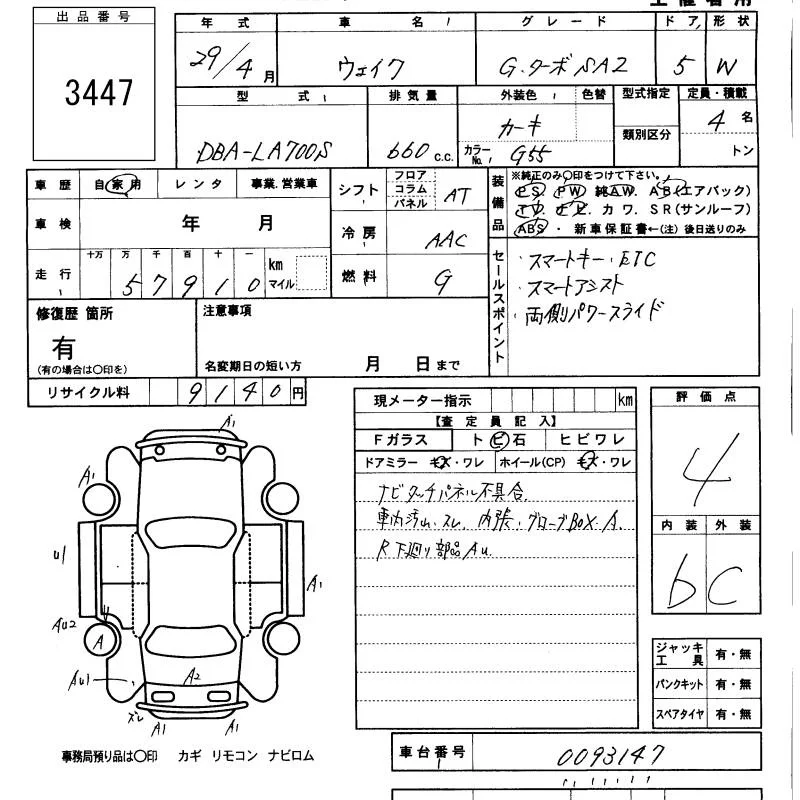 出品番号
3447
年式 車名 グレード ドア 形状
29/4月 ウェイク G.ターボSA2 5 W
型式 排気量 外装色 色替 型式指定 定員・積載
DBA-LA700S 660c.c. カーキ 4名
カラーNo. G55 類別区分 トン
車歴 自家用 レンタ 事業.営業車
車検 年 月
走行 十万 万 千 百 十 一 km マイル
57910
シフト フロア コラム パネル AT
冷房 AAC
燃料 G
装備品
※純正のみ○印をつけて下さい。
PS PW 純AW. AB(エアバック)
TV ナビ カワ. SR(サンルーフ)
ABS・新車保証書←(注) 後日送りのみ
セールスポイント
・スマートキー・ETC
・スマートアシスト
・両側パワースライド
修復歴 箇所
有
(有の場合は○印を)
注意事項
名変期日の短い方 月 日まで
リサイクル料 9140円
現メーター指示 km
【査定員記入】
Fガラス トビ石 ヒビワレ
ドアミラー キズ・ワレ ホイール(CP) キズ・ワレ
ナビタッチパネル不具合
車内汚れ.スレ. 内張.グローブBOX A.
R下廻り部品Au.
評価点
4
内装 外装
b C
ジャッキ工具 有・無
パンクキット 有・無
スペアタイヤ 有・無
A1
A1
U1
A1
AU2
A
AU1
A2
ズレ
A1
A1
事務局預り品は○印 カギ リモコン ナビロム
車台番号 0093147